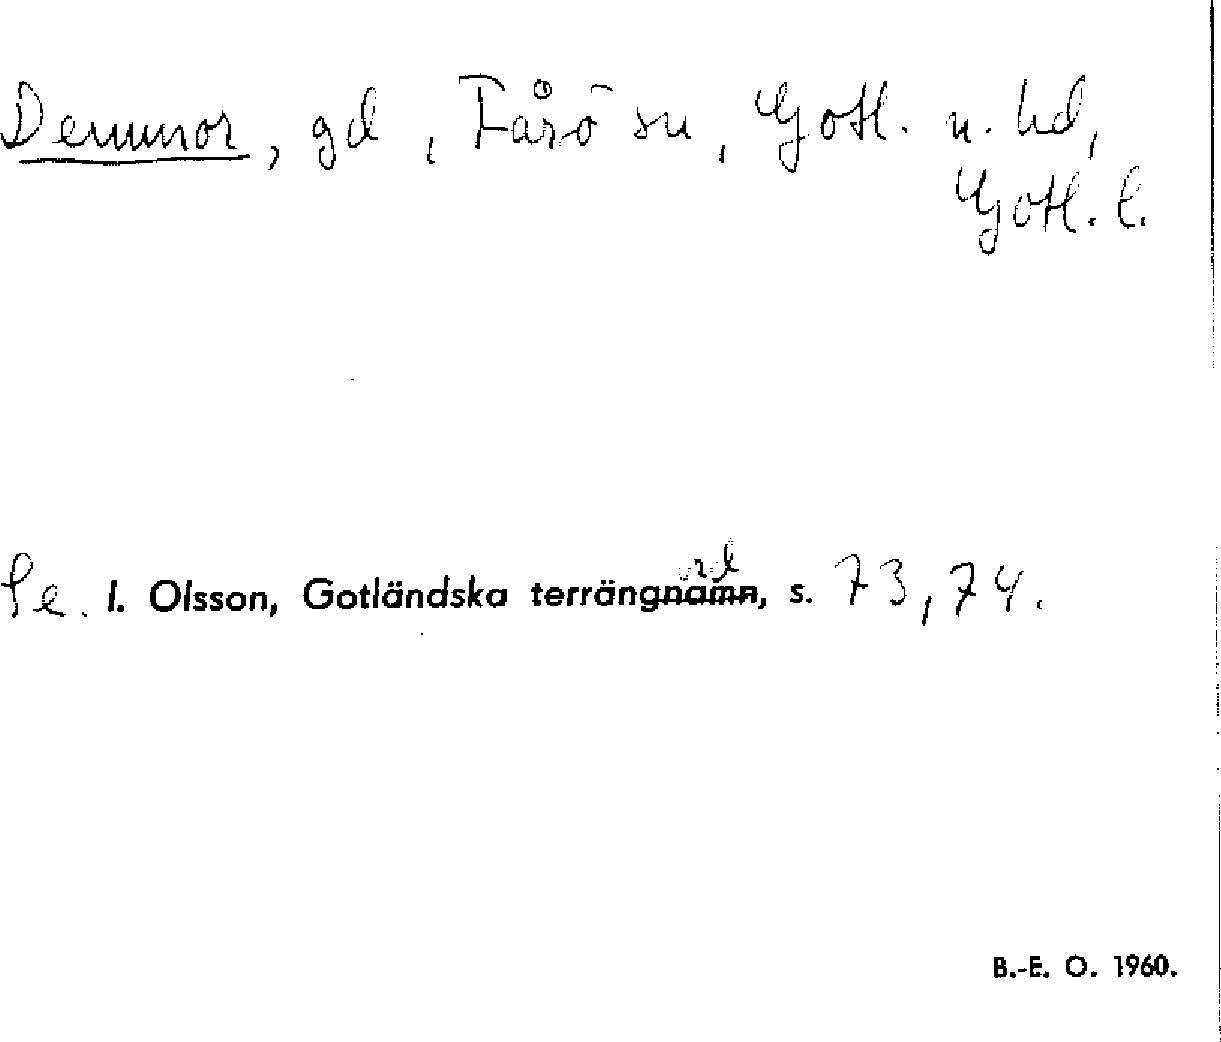 , gd, Fårö sn, Gotl. n. hd,
Gotl. l.
Se. I. Olsson, Gotländska terrängnamn, s. 73, 74.
B.-E. O. 1960.